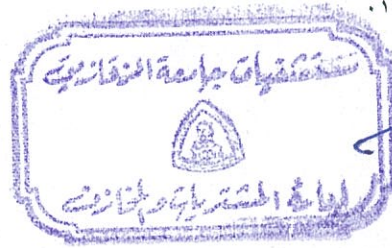 مستشفيات جامعة الزقازيق
لجان المشتريات والمخازن